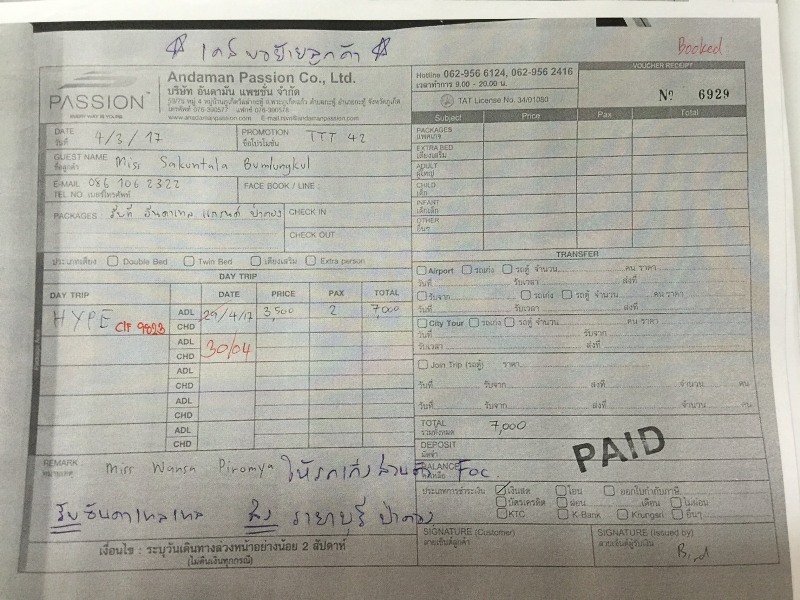 Booked
PASSION
EVERY WAY IS YOURS
Andaman Passion Co., Ltd.
บริษัท อันดามัน แพชชั่น จำกัด
www.andamanpassion.com
Hotline 062-956 6124, 062-956 2416
เวลาทำการ 9.00 - 20.00 น.
TAT License No. 34/01080
VOUCHER RECEIPT
No 6929
DATE วันที่ 4/3/17
PROMOTION ชื่อโปรโมชั่น TTT 42
GUEST NAME ชื่อลูกค้า Miss Sakuntala Bumlungkul
E-MAIL TEL NO. เบอร์โทรศัพท์ 086 106 2322
FACE BOOK / LINE :
PACKAGES :
CHECK IN
CHECK OUT
ประเภทเตียง Double Bed Twin Bed เตียงเสริม Extra person
DAY TRIP
DAY TRIP DATE PRICE PAX TOTAL
HYPE CIF 9823 ADL 29/4/17 3,500 2 7,000
CHD
ADL 30/04
CHD
ADL
CHD
ADL
CHD
ADL
CHD
REMARK : หมายเหตุ Miss Wansa Piromya FOC.
รับ ส่ง
เงื่อนไข : ระบุวันเดินทางล่วงหน้าอย่างน้อย 2 สัปดาห์
(ไม่คืนเงินทุกกรณี)
Subject Price Pax Total
PACKAGES แพคเกจ
EXTRA BED เตียงเสริม
ADULT ผู้ใหญ่
CHILD เด็ก
INFANT เด็กเล็ก
OTHER อื่นๆ
TRANSFER
Airport รถเก๋ง รถตู้ จำนวน คน ราคา
วันที่ รับเวลา ส่งที่
รับจาก รถเก๋ง รถตู้ จำนวน คน ราคา
วันที่ รับเวลา ส่งที่
City Tour รถเก๋ง รถตู้ จำนวน คน ราคา
วันที่ รับจาก
รับเวลา ส่งที่
Join Trip (รถตู้) ราคา
วันที่ รับจาก ส่งที่ จำนวน คน
วันที่ รับจาก ส่งที่ จำนวน คน
TOTAL รวมทั้งหมด 7,000
DEPOSIT มัดจำ
PAID
BALANCE
ประเภทการชำระเงิน เงินสด โอน ออกใบกำกับภาษี
บัตรเครดิต ผ่อน เดือน ไม่ผ่อน
KTC K-Bank Krungsri อื่นๆ
SIGNATURE (Customer) ลายเซ็นต์ลูกค้า
SIGNATURE (Issued by) ลายเซ็นต์ผู้รับเงิน
Bird